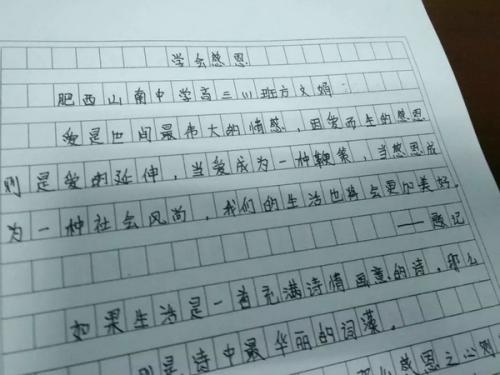 学会感恩
肥西山南中学高三(1)班方文娟
爱是世间最伟大的情感，因爱而生的感恩
则是爱的延伸，当爱成为一种鞭策，当感恩成
为一种社会风尚，我们的生活也将会更加美好。
——题记
如果生活是一首充满诗情画意的诗，那么
则是诗中最华丽的词藻。
感恩之心则